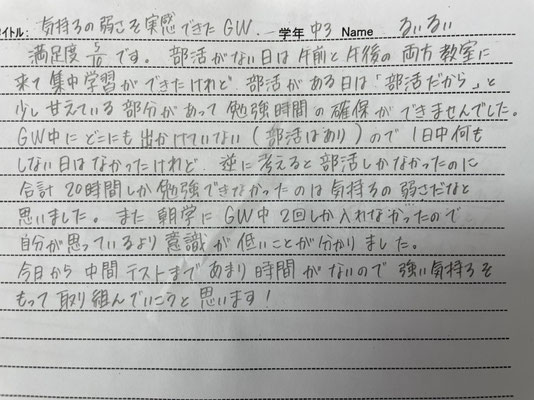 タイトル: 気持ちの弱さを実感できたGW. 学年 中3 Name るいるい
満足度 5/10 です。部活がない日は午前と午後の両方教室に
来て集中学習ができたけれど 部活がある日は「部活だから」と
少し甘えている部分があって勉強時間の確保ができませんでした。
GW中にどこにも出かけていない(部活はあり)ので1日中何も
しない日はなかったけれど 逆に考えると部活しかなかったのに
合計20時間しか勉強できなかったのは気持ちの弱さだなと
思いました。また 朝学にGW中2回しか入れなかったので
自分が思っているより意識が低いことが分かりました。
今日から中間テストまであまり時間がないので 強い気持ちを
もって取り組んでいこうと思います!